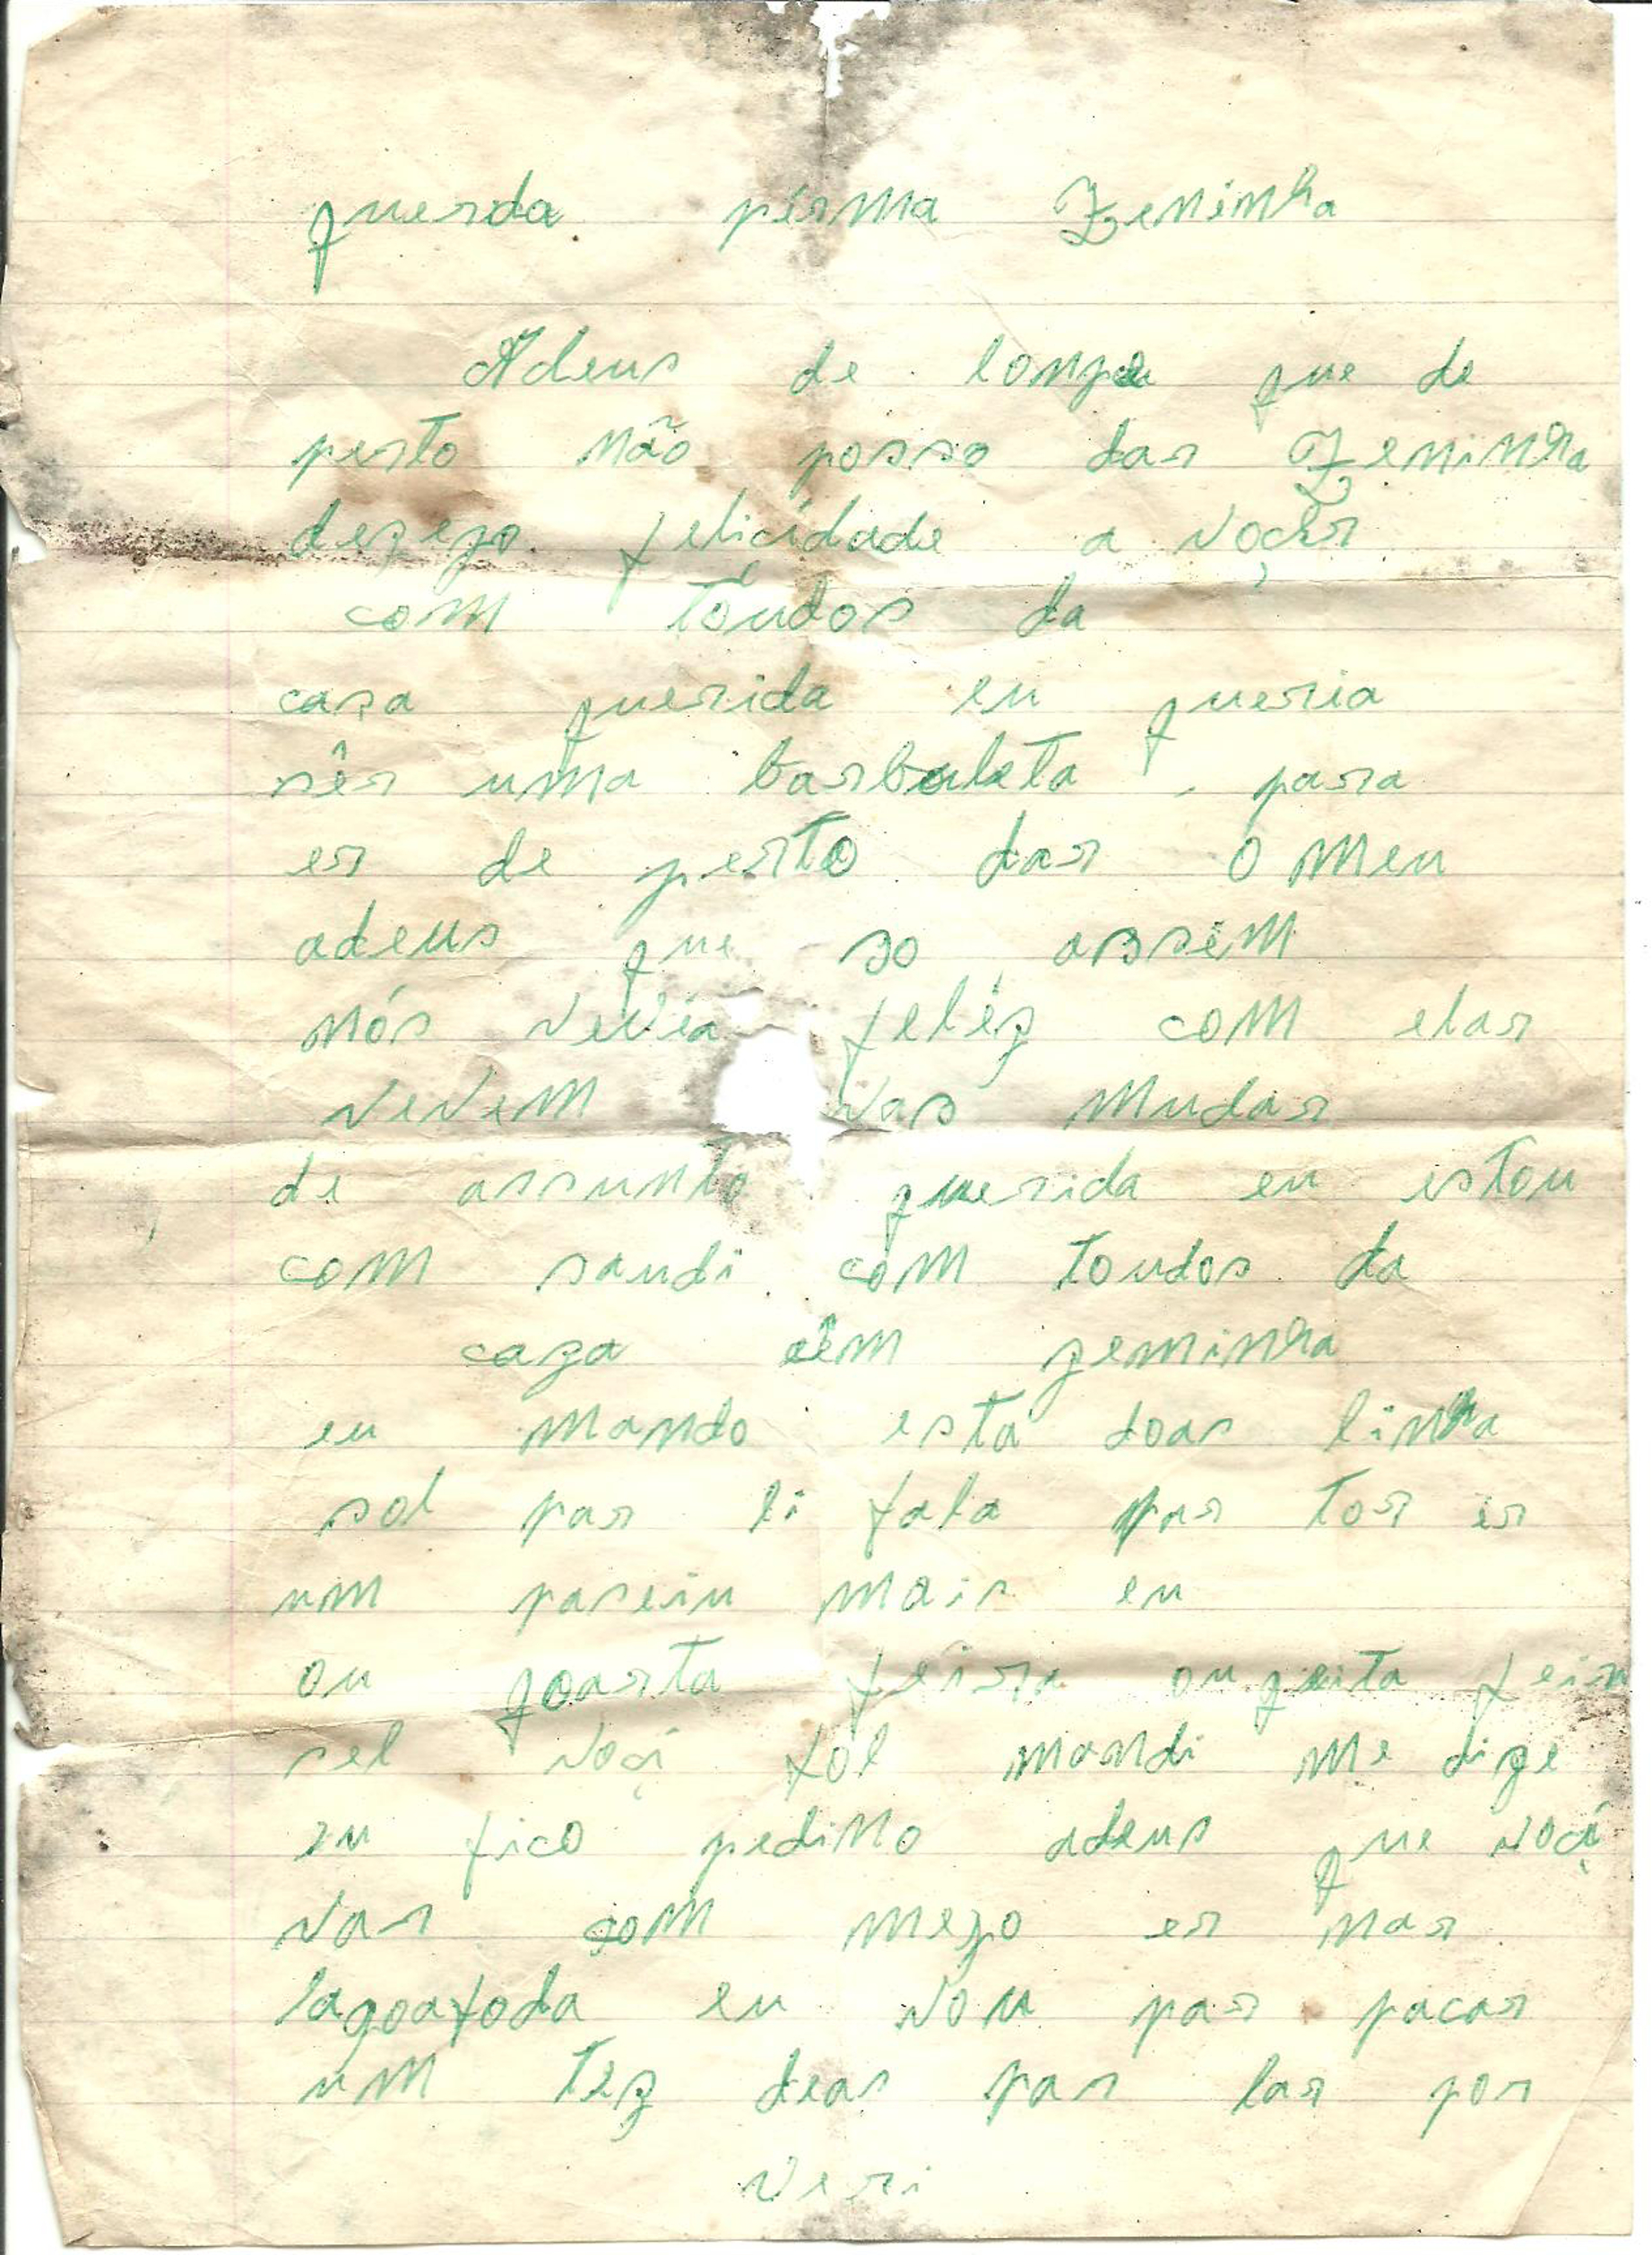 querda pérma Zeninha
Adeus de longe que de
perto não posso dar Zeninha
dezejo felicidade a voçer
com toudos da
casa querida eu queria
sêr uma barbuleta para
er de perto dar o meu
adeus que so assim
nós vevia feliz com elar
vevem vas mudar
de assunto querida eu estou
com saudi com toudos da
caza eim zeninha
eu mando esta doas linha
sol par li fala par tor er
um paseiu mais eu
ou quarta feira ou quita feira
sel voçê fol mandi me dize
eu fico pedino adeus que voçê
var com mego er nar
lagoafoda eu vou par pacar
um tez dear par lar por
veri